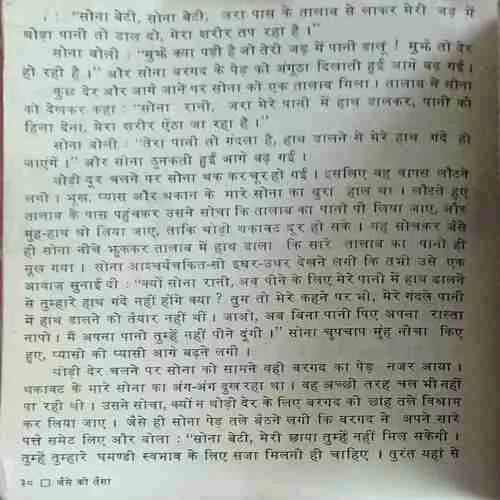 “सोना बेटी, सोना बेटी, जरा पास के तालाब से लाकर मेरी जड़ में
थोड़ा पानी तो डाल दो, मेरा शरीर तप रहा है।”
सोना बोली : “मुझे क्या पड़ी है जो तेरी जड़ में पानी डालूं ! मुझे तो देर
हो रही है।” और सोना बरगद के पेड़ को अंगूठा दिखाती हुई आगे बढ़ गई।
कुछ देर और आगे जाने पर सोना को एक तालाब मिला। तालाब ने सोना
को देखकर कहा : “सोना रानी, जरा मेरे पानी में हाथ डालकर, पानी को
हिला देना, मेरा शरीर ऐंठा जा रहा है।”
सोना बोली : “तेरा पानी तो गंदला है, हाथ डालने से मेरे हाथ गंदे हो
जाएंगे।” और सोना ठुनकती हुई आगे बढ़ गई।
थोड़ी दूर चलने पर सोना थक कर चूर हो गई। इसलिए वह वापस लौटने
लगी। भूख, प्यास और थकान के मारे सोना का बुरा हाल था। लौटते हुए
तालाब के पास पहुंचकर उसने सोचा कि तालाब का पानी पी लिया जाए, और
मुंह-हाथ धो लिया जाए, ताकि थोड़ी थकावट दूर हो सके। यह सोचकर जैसे
ही सोना नीचे झुककर तालाब में हाथ डाला कि सारे तालाब का पानी ही
सूख गया। सोना आश्चर्यचकित-सी इधर-उधर देखने लगी कि तभी उसे एक
आवाज सुनाई दी : “क्यों सोना रानी, अब पीने के लिए मेरे पानी में हाथ डालने
से तुम्हारे हाथ गंदे नहीं होंगे क्या ? तुम तो मेरे कहने पर भी, मेरे गंदले पानी
में हाथ डालने को तैयार नहीं थी। जाओ, अब बिना पानी पिए अपना रास्ता
नापो। मैं अपना पानी तुम्हें नहीं पीने दूंगी।” सोना चुपचाप मुंह नीचा किए
हुए, प्यासी की प्यासी आगे बढ़ने लगी।
थोड़ी देर चलने पर सोना को सामने वही बरगद का पेड़ नजर आया।
थकावट के मारे सोना का अंग-अंग दुख रहा था। वह अच्छी तरह चल भी नहीं
पा रही थी। उसने सोचा, क्यों न थोड़ी देर के लिए बरगद की छांह तले विश्राम
कर लिया जाए। जैसे ही सोना पेड़ तले बैठने लगी कि बरगद ने अपने सारे
पत्ते समेट लिए और बोला : “सोना बेटी, मेरी छाया तुम्हें नहीं मिल सकेगी।
तुम्हें तुम्हारे घमण्डी स्वभाव के लिए सजा मिलनी ही चाहिए। तुरंत यहां से
३८ □ जैसे को तैसा